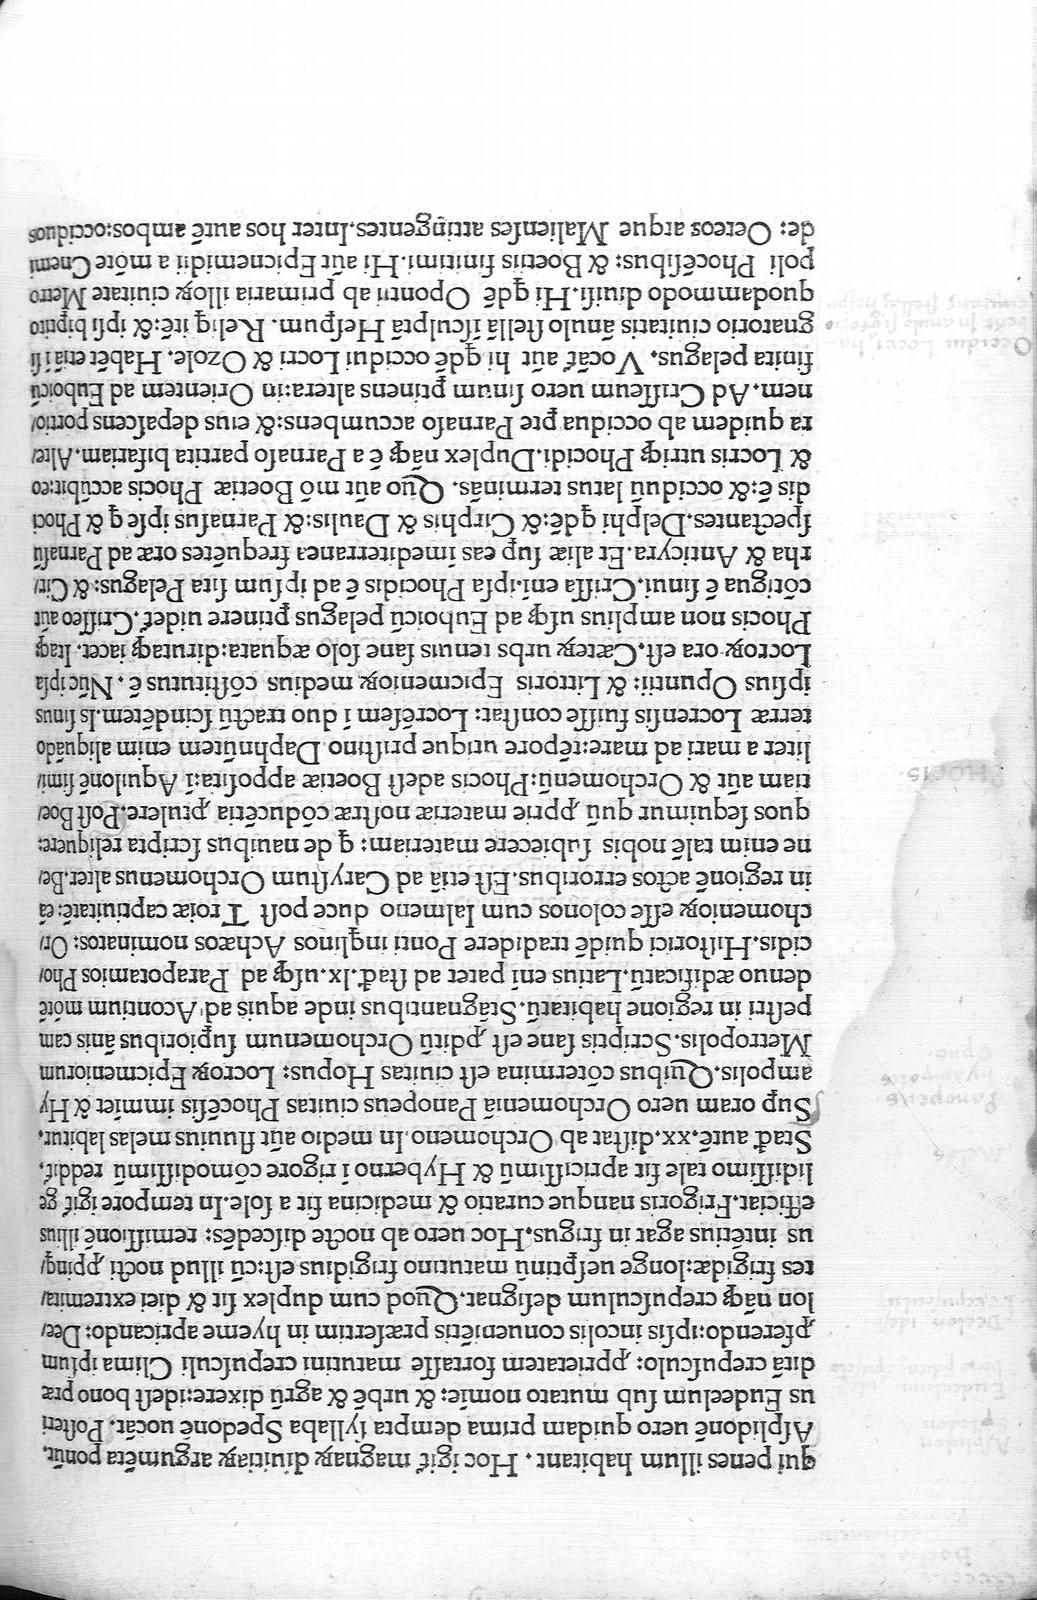 qui penes illum habitant. Hoc igit̃ magnaꝝ diuitiaꝝ argumẽta ponũt.
Aſplidonẽ uero quidam prima dempta ſyllaba Spedonẽ uocãt. Poſteri
us Eudeelum ſub mutato nomie: & urbẽ & agrũ dixere: ideſt bono præ
ditã crepuſculo: ꝓprietatem fortaſſe matutini crepuſculi Clima ipſum
ꝓferendo: ipſis incolis conueniẽtis præſertim in hyeme apricando: Dee/
lon nãqꝫ crepuſculum deſignat. Quod cum duplex ſit & diei extremita/
tes frigidæ: longe ueſꝑtinũ matutino frigidius eſt: cũ illud nocti ꝓpinq̃/
us intẽtius agat in frigus. Hoc uero ab nocte diſcedẽs: remiſſionẽ illius
efficiat. Frigoris nanque curatio & medicina fit a ſole. In tempore igit̃ ge
lidiſſimo tale fit apriciſſimũ & Hyberno ĩ rigore cõmodiſſimũ reddit̃.
Stad̃ autẽ. xx. diſtat ab Orchomeno. In medio aũt fluuius melas labitur.
Suꝑ oram uero Orchomeniã Panopeus ciuitas Phocẽſis immiet & Hy
ampolis. Quibus cõtermina eſt ciuitas Hopus: Locroꝝ Epicmeniorum
Metropolis. Scriptis ſane eſt ꝓditũ Orchomenum ſuꝑioribus ãnis cam
peſtri in regione habitatũ. Stãgnantibus inde aquis ad Acontium mõtẽ
denuo ædificatũ. Latius eni patet ad ſtad̃. lx. uſqꝫ ad Parapotamios Pho/
cidis. Hiſtorici quidẽ tradidere Ponti inqlinos Achæos nominatos: Or/
chomenioꝝ eſſe colonos cum Ialmeno duce poſt Troiæ captiuitatẽ: eã
in regionẽ actos erroribus. Eſt etiã ad Caryſtum Orchomenus alter. Be/
ne enim talẽ nobis ſubiecere materiam: q de nauibus ſcripta reliquere:
quos ſequimur quũ ꝓprie materiæ noſtræ cõducẽtia ꝓtulere. Poſt Boe/
tiam aũt & Orchomenũ: Phocis adeſt Boetiæ appoſita: ĩ Aquilonẽ ſimi/
liter a mari ad mare: tẽpore utique priſtino Daphnũtem enim aliquãdo
terræ Locrenſis fuiſſe conſtat: Locrẽſem ĩ duo tractũ ſcindẽtem. Is ſinus
ipſius Opuntii: & Littoris Epicmenioꝝ medius cõſtitutus ẽ. Nũc ipſa
Locroꝝ ora eſt. Cæteꝝ urbs tenuis ſane ſolo æquata: dirutaqꝫ iacet. Itaqꝫ
Phocis non amplius uſqꝫ ad Euboicũ pelagus ꝑtinere uidet̃. Criſſeo aũt
cõtigua ẽ ſinui. Criſſa eni: ipſa Phocidis ẽ ad ipſum ſita Pelagus: & Cir/
rha & Anticyra. Et aliæ ſuꝑ eas ĩmediterranea frequẽtes oræ ad Parnaſũ
ſpectantes. Delphi qdẽ: & Cirphis & Daulis: & Parnaſus ipſe q & Phoci
dis ẽ: & occiduũ latus terminãs. Quo aũt mõ Boetiæ Phocis accũbit: eo
& Locris utriqꝫ Phocidi. Duplex nãqꝫ ẽ a Parnaſo partita bifariam. Alte/
ra quidem ab occidua ꝑte Parnaſo accumbens: & eius depaſcens portio/
nem. Ad Criſſeum uero ſinum ꝑtinens altera: in Orientem ad Euboicũ
finita pelagus. Vocãt̃ aũt hi qdẽ occidui Locri & Ozole. Habẽt etiã ĩ ſi
gnatorio ciuitatis ãnulo ſtellã ĩſculptã Heſpum. Reliq itẽ: & ipſi biptito
quodammodo diuiſi. Hi qdẽ Opontii ab primaria illoꝝ ciuitate Metro
poli Phocẽſibus: & Boetiis finitimi. Hi aũt Epicnemidii a mõte Cnemi
de: Oeteos atque Malienſes attingentes. Inter hos autẽ ambos: occiduos
Aſplidon
Eudeelum
Panopeus
hyampolis
Opus
PHOCIS